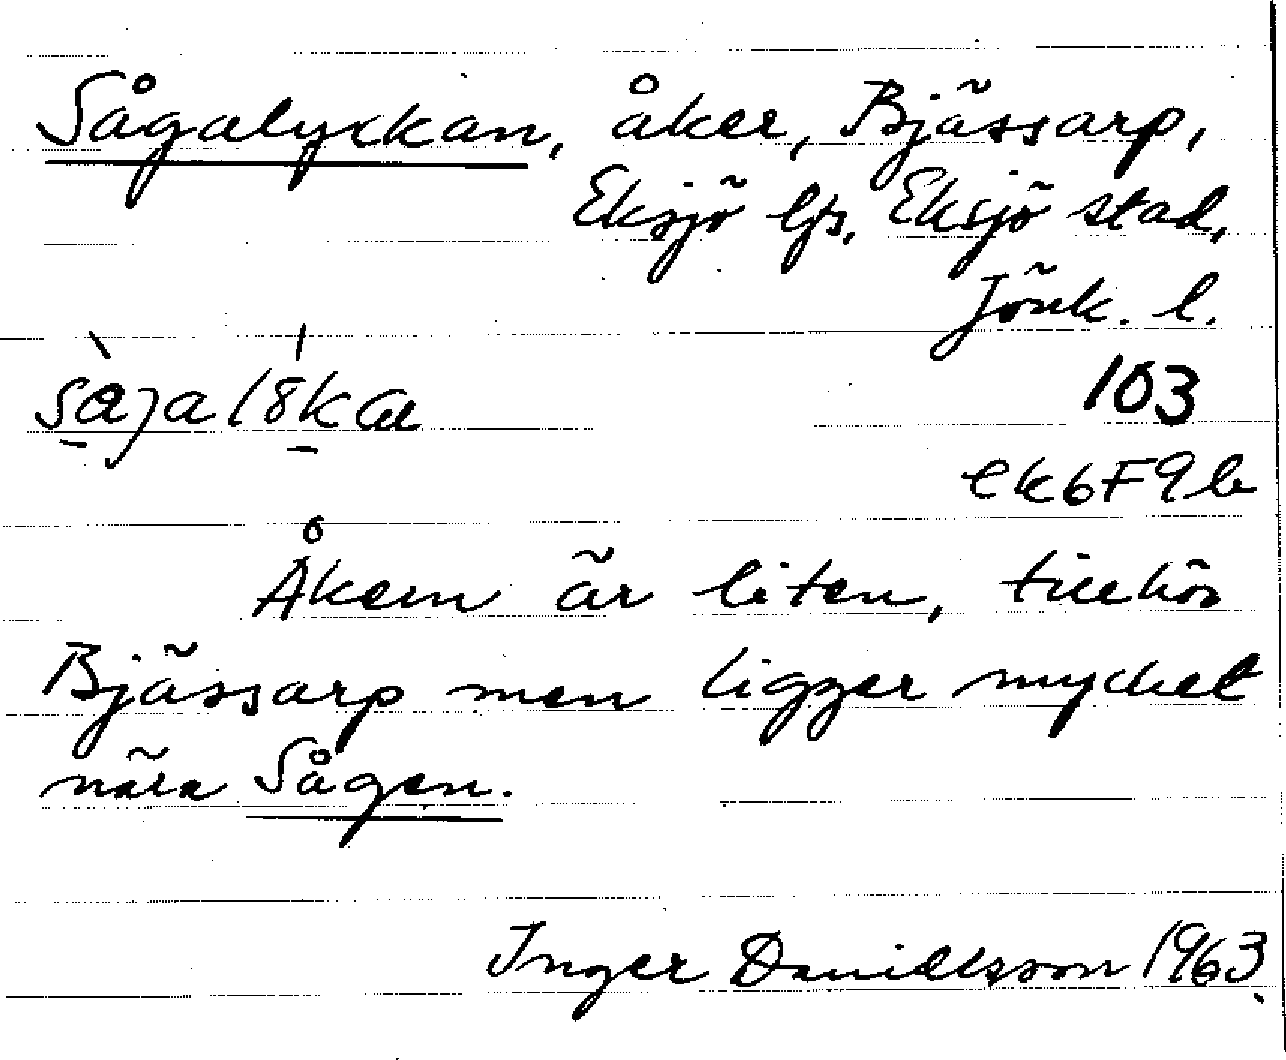 Sågalyckan, åker, Bjässarp,
Eksjö lfs, Eksjö stad,
Jönk. l.
103
ek6F9b
Åkern är liten, tillhör
Bjässarp men ligger mycket
nära Sågen.
Inger Danielsson 1963